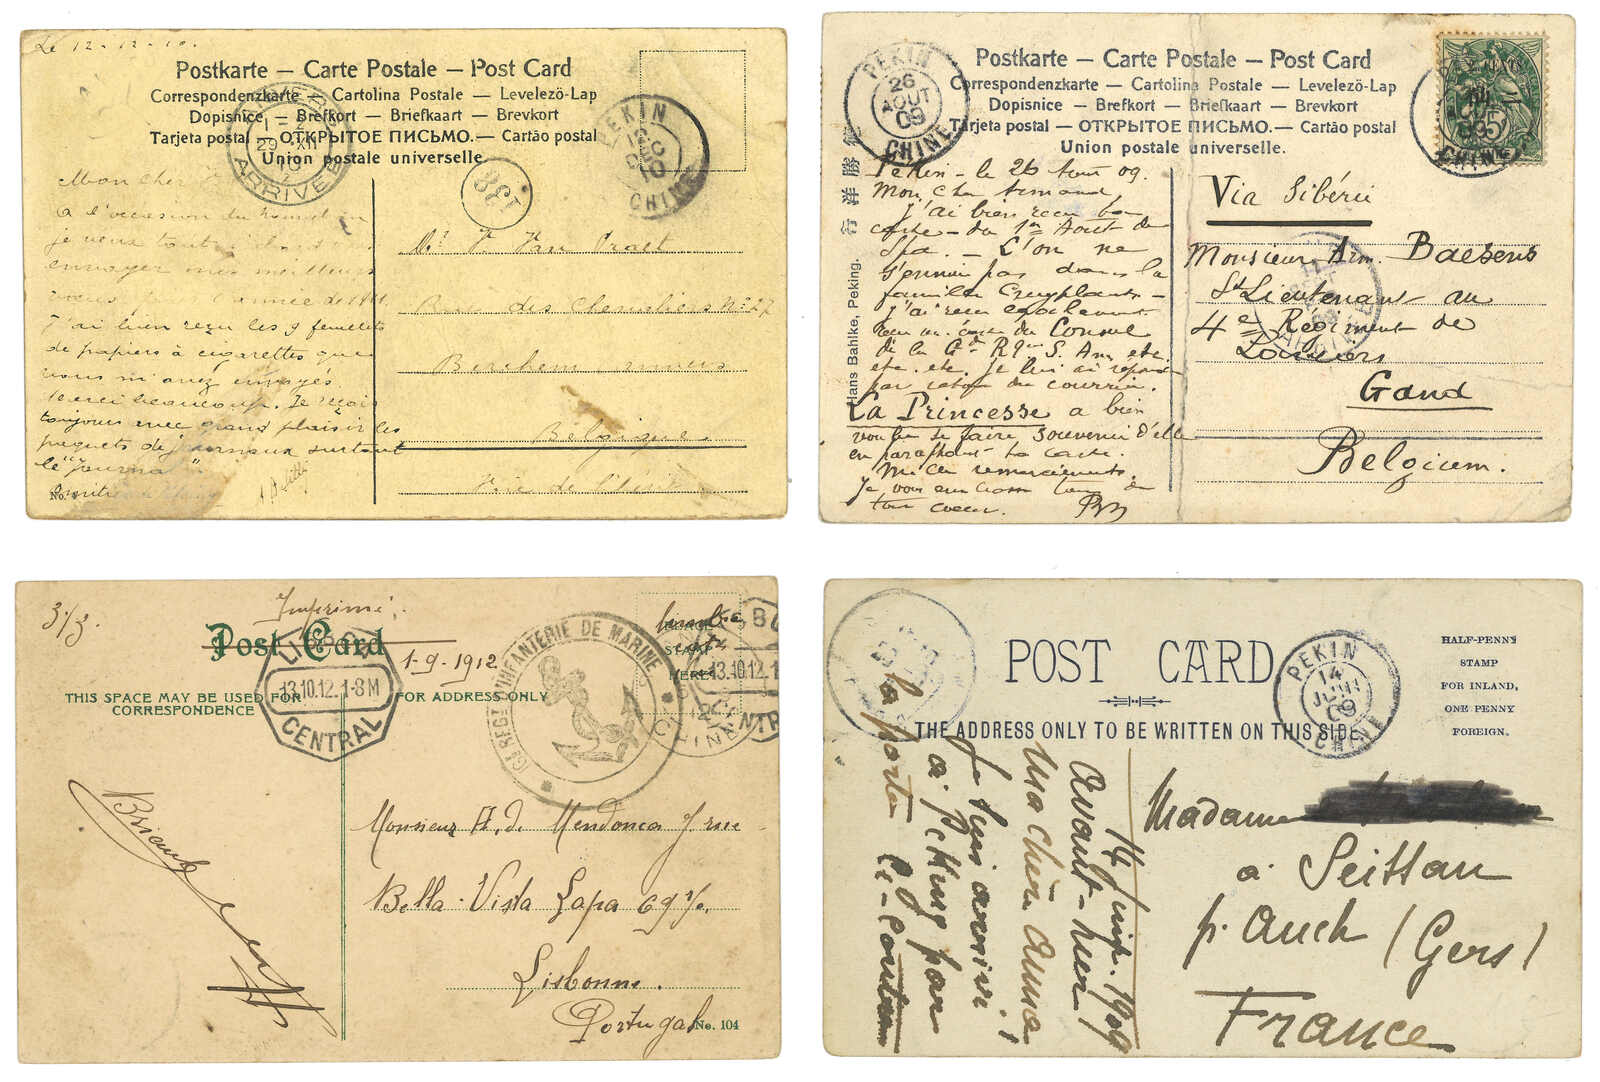 Le 12-12-10.
Postkarte – Carte Postale – Post Card
Correspondenzkarte – Cartolina Postale – Levelezö-Lap
Dopisnice – Brefkort – Briefkaart – Brevkort
Tarjeta postal – ОТКРЫТОЕ ПИСЬМО. – Cartão postal
Union postale universelle.
ANVERS
1-2
29 XII
10
ARRIVÉE
138
PEKIN
DEC
10
CHINE
Mon cher
à l'occasion du
je veux tout d'abord
envoyer mes meilleurs
voeux pour l'année de 1911.
J'ai bien reçu les 9 feuillets
de papiers à cigarettes que
vous m'avez envoyés.
Merci beaucoup. Je reçois
toujours avec grand plaisir les
paquets de journaux surtout
le "journal"
Van Praet
Rue des Cheminées No 27
Berchem Anvers
Belgique
No.
PEKIN
26
AOUT
09
CHINE
Postkarte – Carte Postale – Post Card
Correspondenzkarte – Cartolina Postale – Levelezö-Lap
Dopisnice – Brefkort – Briefkaart – Brevkort
Tarjeta postal – ОТКРЫТОЕ ПИСЬМО. – Cartão postal
Union postale universelle.
5
CHINE
行洋勝
Hans Bahlke, Peking.
Pékin - le 26 Aout 09.
Mon cher Armand,
j'ai bien reçu ta
carte - du 1er Aout de
Spa. - L'on ne
s'ennuie pas dans la
famille Cruyplants -
j'ai reçu également
une carte du Consul
de la Gde Rque S. Am. etc.
etc. etc. je lui ai répondu
par retour du courrier.
La Princesse a bien
voulu se faire souvenir d'elle
en paraphant ta carte.
Mille remerciements.
Je vous embrasse tous de
tout coeur.
Via Sibérie
Monsieur Arm. Baesens
St Lieutenant au
4e Regiment de
Lanciers
Gand
Belgicum.
3/3.
Imprimé.
Post Card
1-9-1912
THIS SPACE MAY BE USED FOR
CORRESPONDENCE
FOR ADDRESS ONLY
LISBOA
13.10.12. 1-8M
CENTRAL
16e REGT D'INFANTERIE DE MARINE
timbre
STAMP
HERE
13.10.12. 1-8M
CHINE
Monsieur A. de Mendonca J. rue
Bella-Vista Lapa 69
Lisbonne.
Portugal
No. 104
POST CARD
THE ADDRESS ONLY TO BE WRITTEN ON THIS SIDE.
HALF-PENNY
STAMP
FOR INLAND,
ONE PENNY
FOREIGN.
PEKIN
14
JUIN
09
CHINE
14 Juin 1909
Avant-hier
Ma chère Anna,
Je suis arrivé
à Péking par
la porte
ci-contre
Madame
à Seissan
p. Auch (Gers)
France